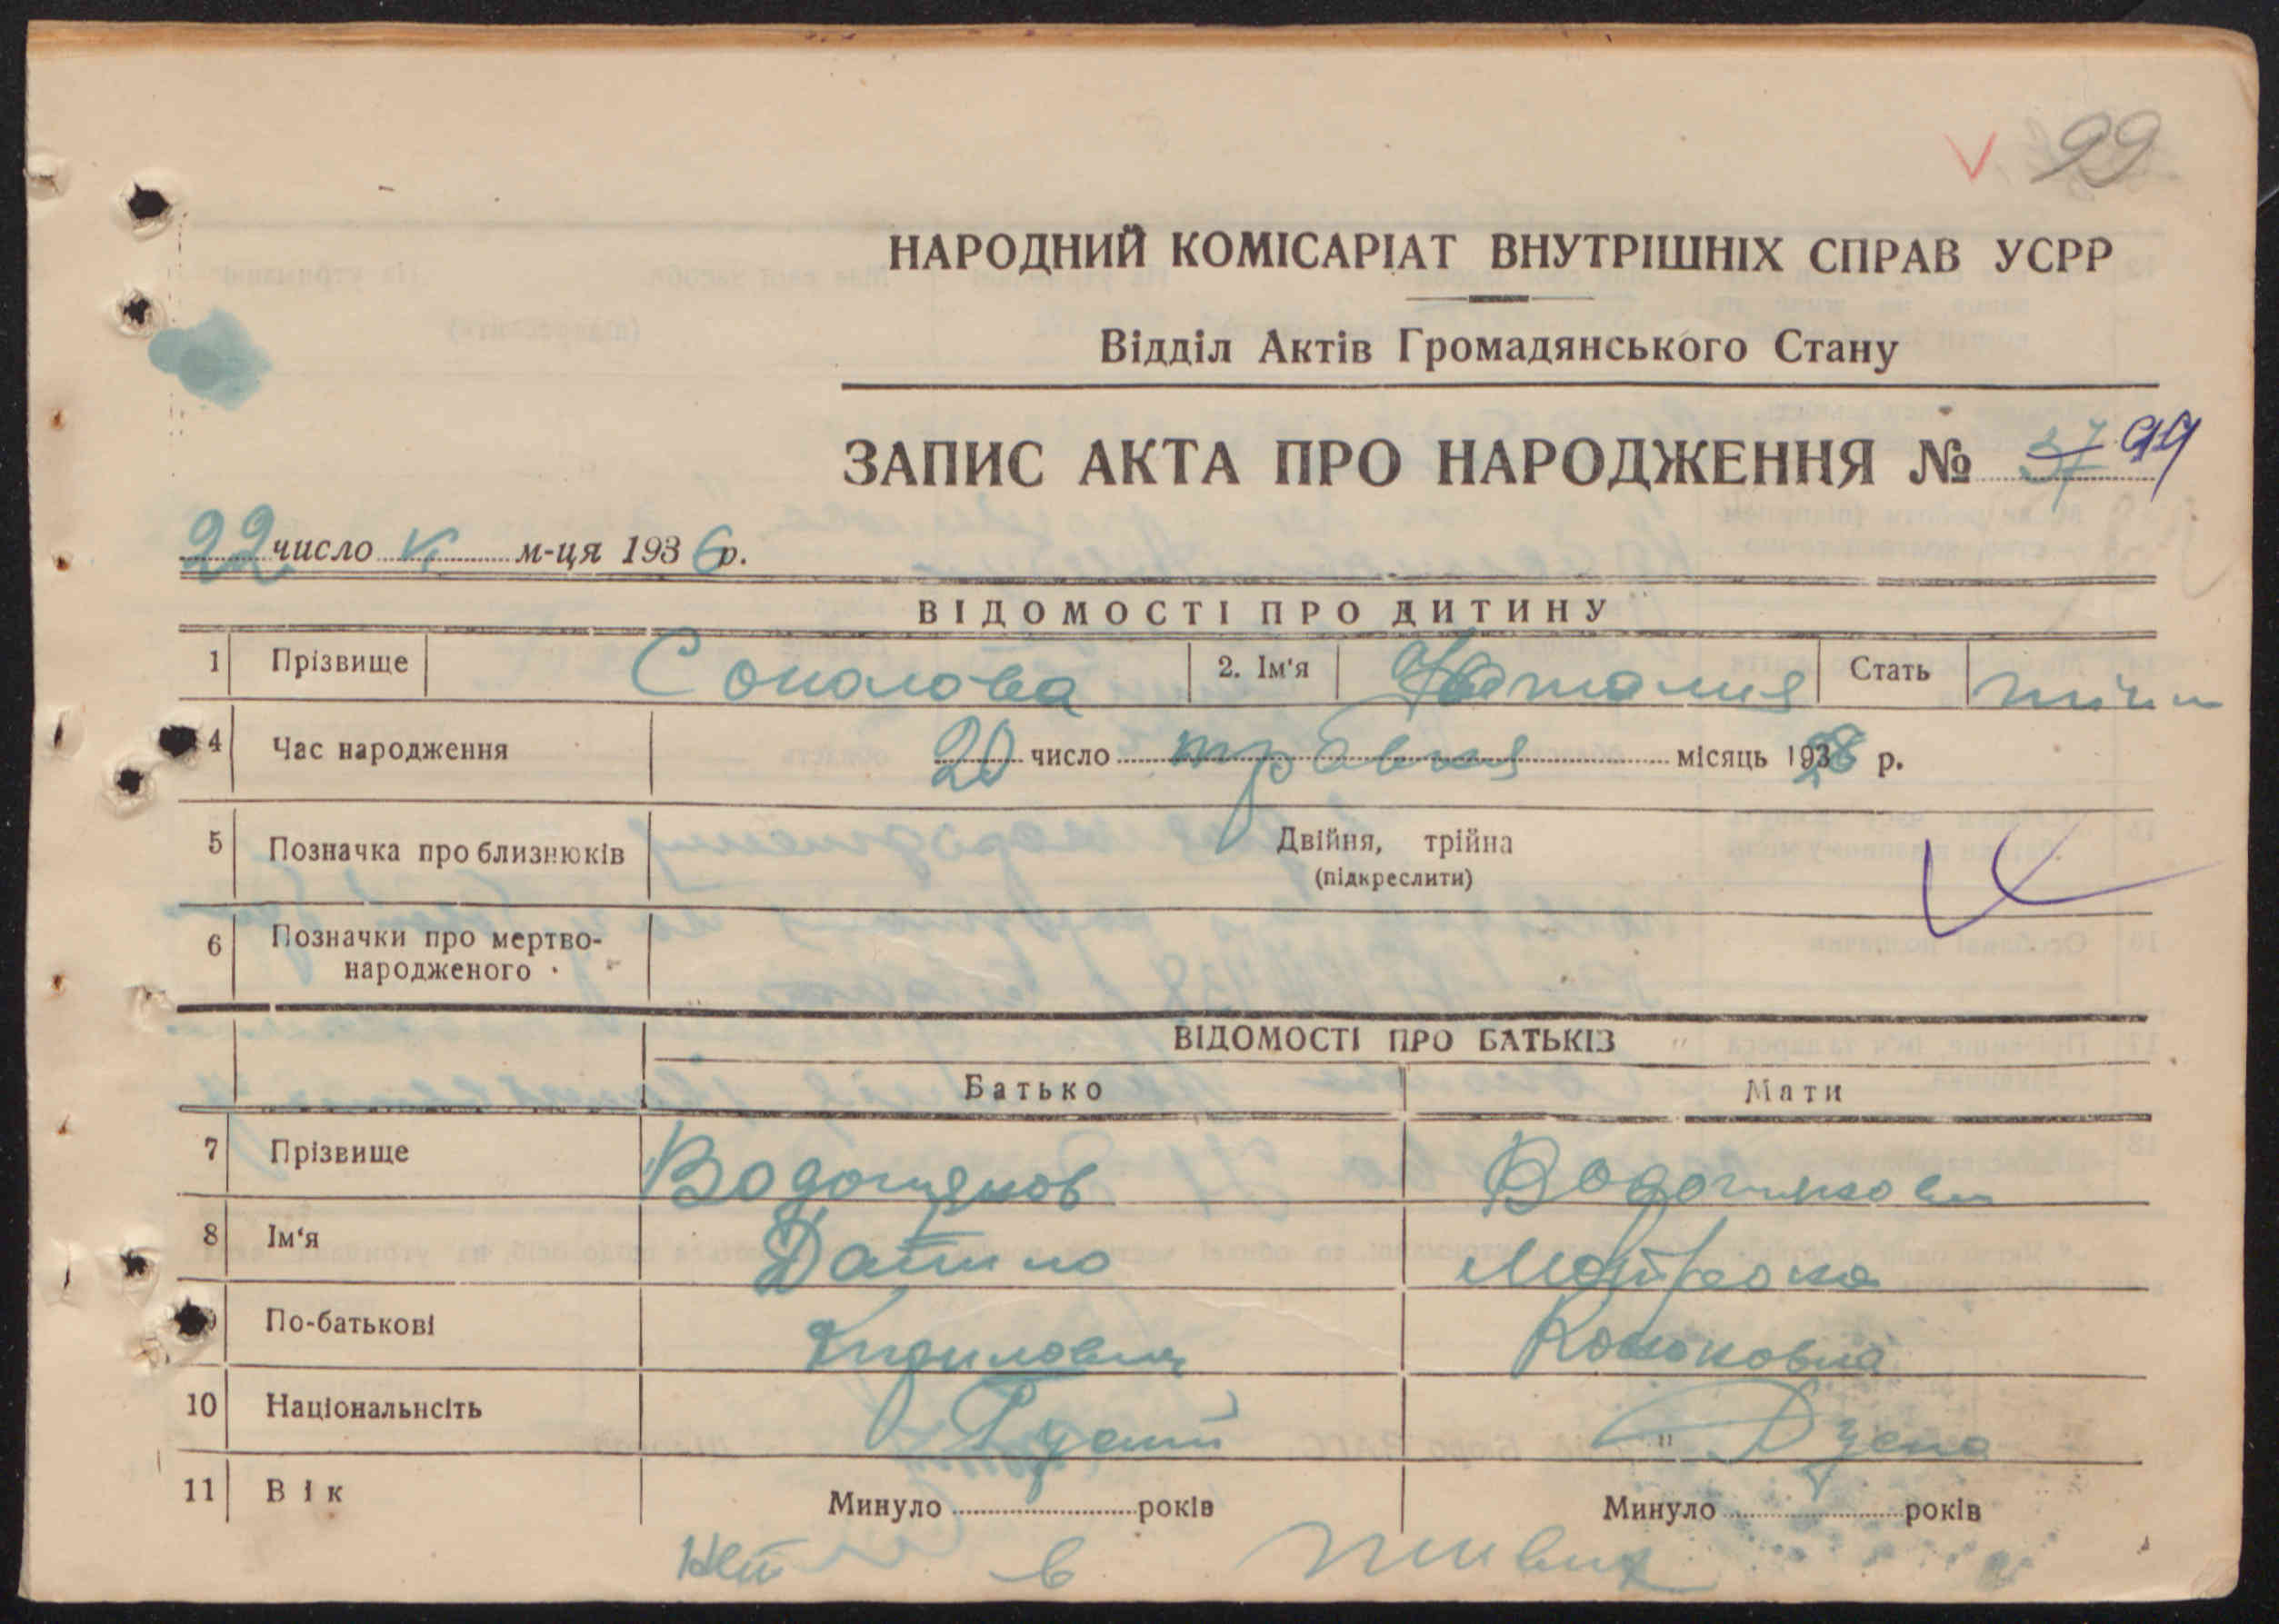 99
НАРОДНИЙ КОМІСАРІАТ ВНУТРІШНІХ СПРАВ УСРР
Відділ Актів Громадянського Стану
ЗАПИС АКТА ПРО НАРОДЖЕННЯ № 37 99
22 число V м-ця 1936 р.
ВІДОМОСТІ ПРО ДИТИНУ
1 Прізвище Соколова 2. Ім'я Наталия Стать жін
4 Час народження 20 число травня місяць 1928 р.
5 Позначка про близнюків Двійня, трійна
(підкреслити)
6 Позначки про мертво-
народженого
ВІДОМОСТІ ПРО БАТЬКІВ
Батько Мати
7 Прізвище
8 Ім'я Данило Мотрона
9 По-батькові Кирилович Кононовна
10 Національнсіть Руский Руска
11 Вік Минуло років Минуло років
нет в живих